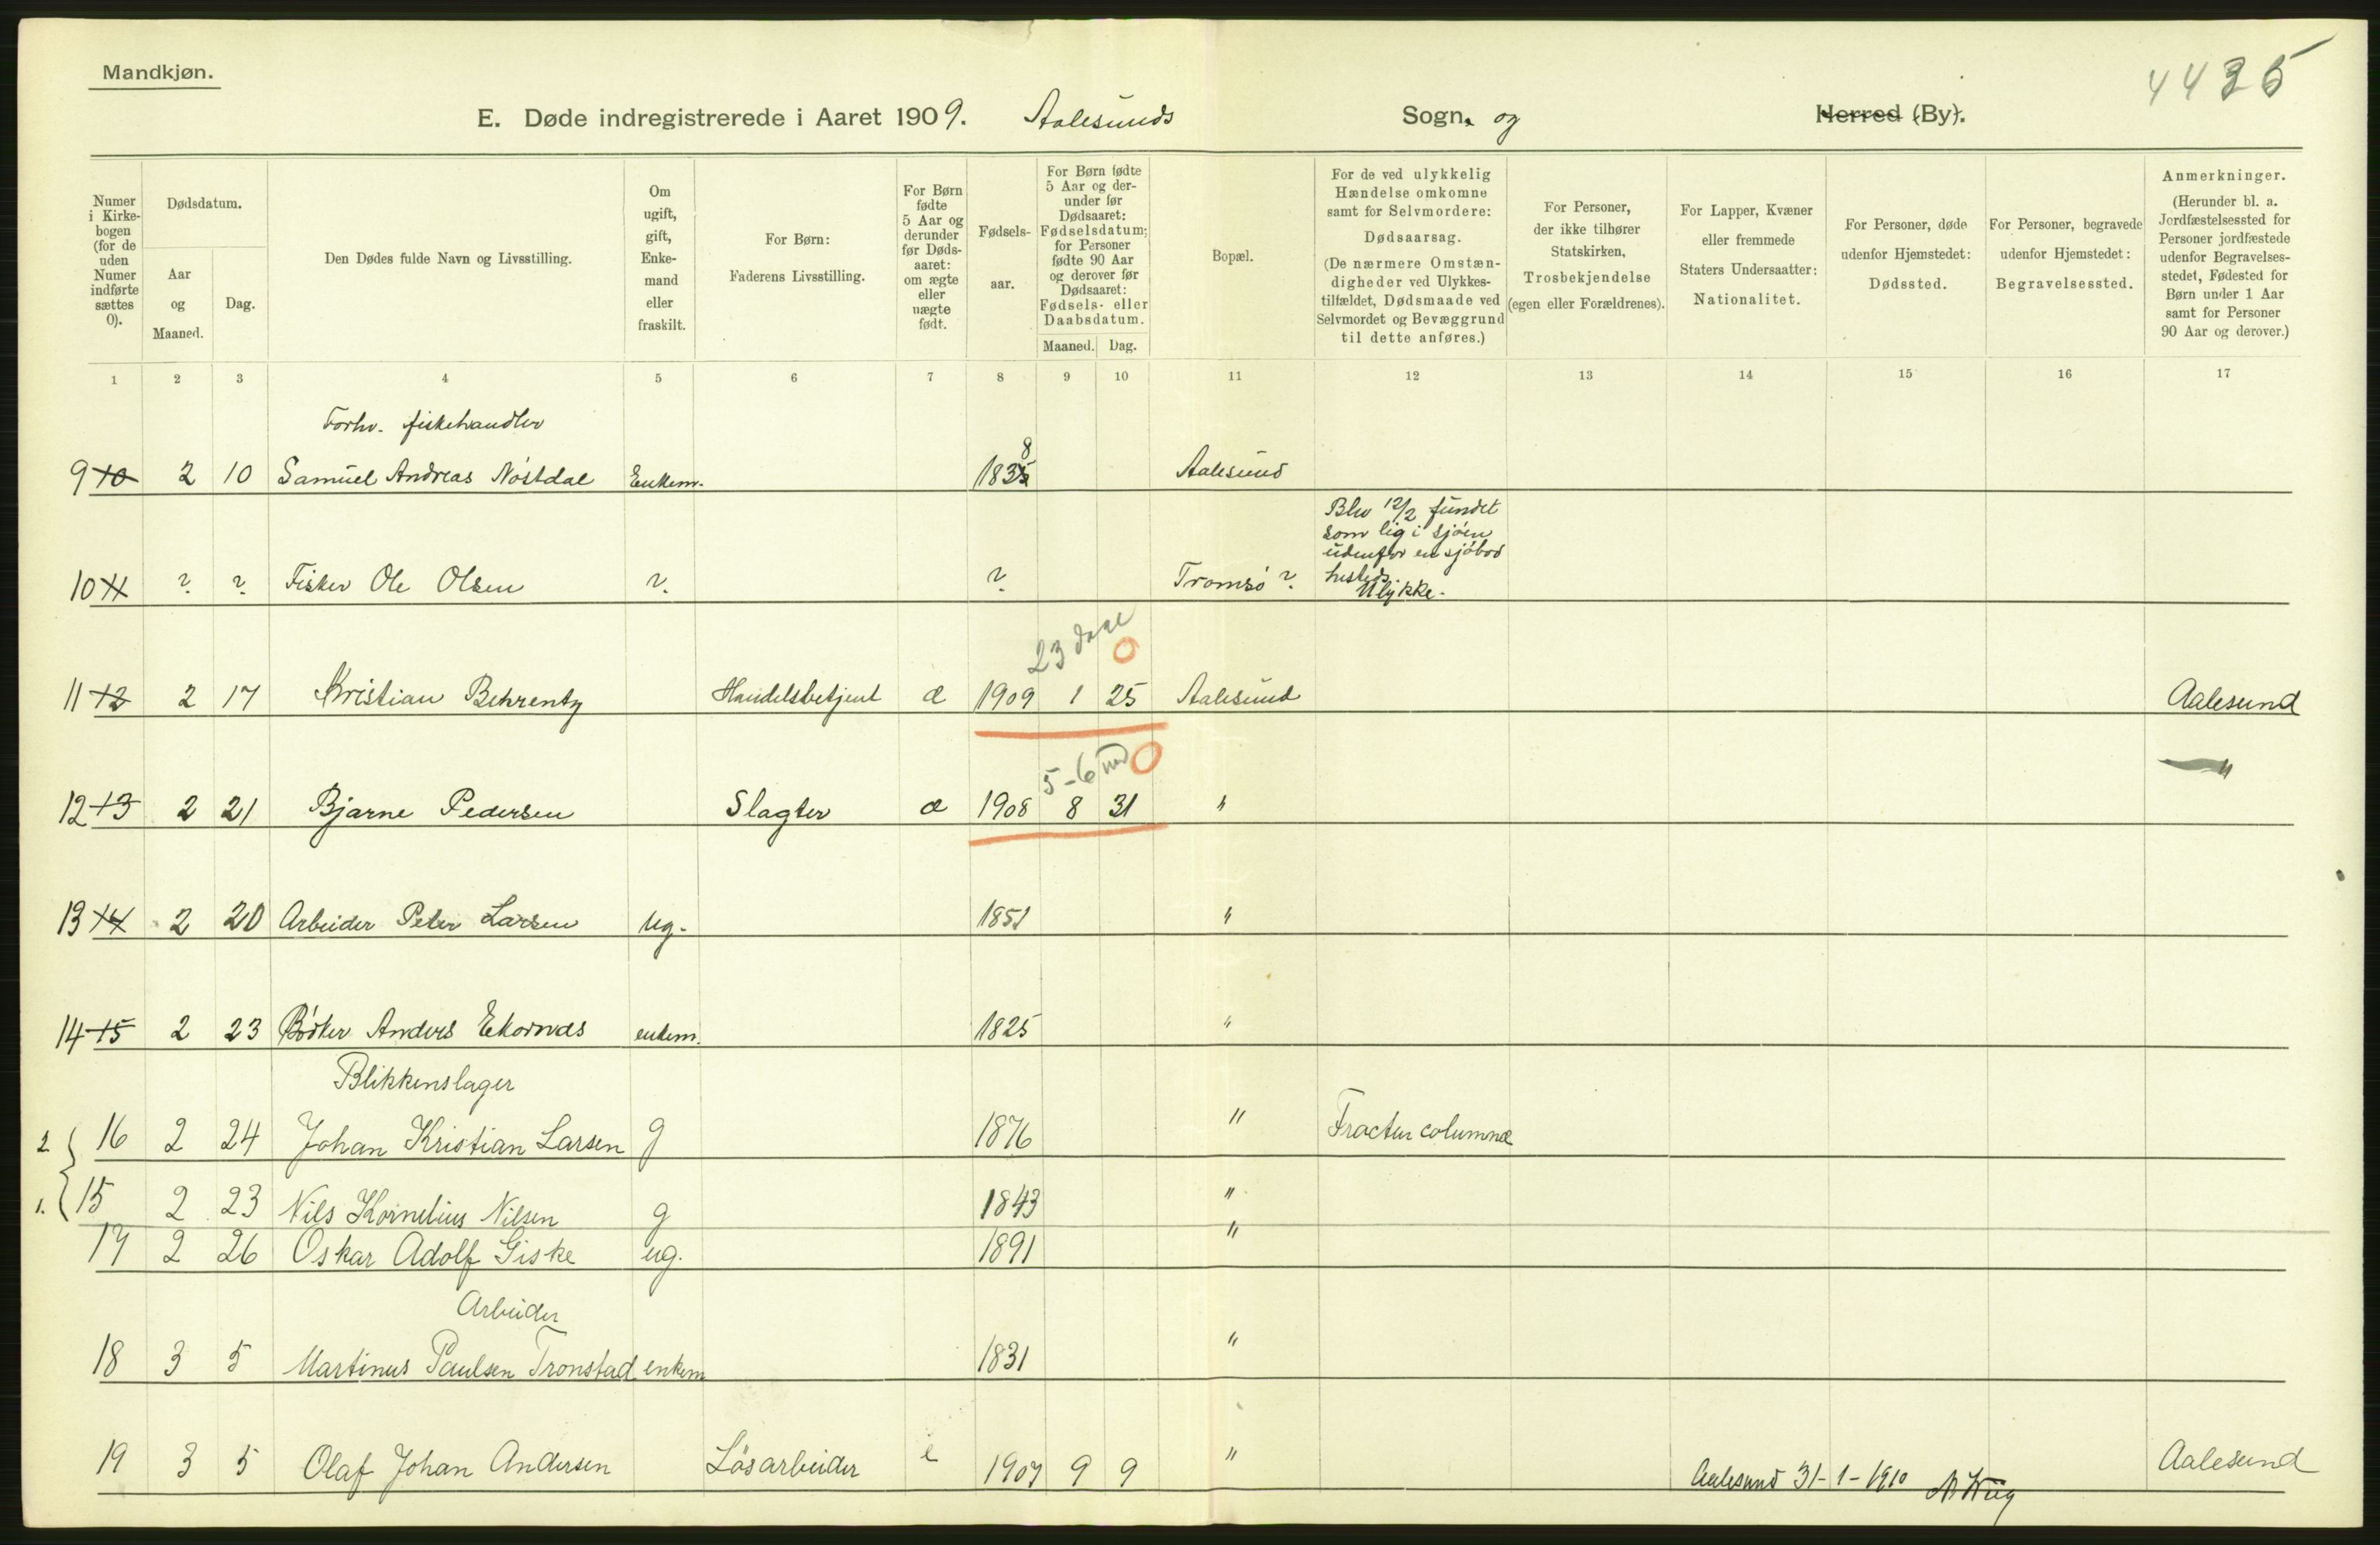 Mandkjøn.
4435
E. Døde indregistrerede i Aaret 1909. Aalesunds Sogn. og Herred (By).
Numer i Kirkebogen (for de uden Numer indførte sættes 0).
Dødsdatum.
Aar og Maaned.
Dag.
Den Dødes fulde Navn og Livsstilling.
Om ugift, gift, Enkemand eller fraskilt.
For Børn: Faderens Livsstilling.
For Børn fødte 5 Aar og derunder før Dødsaaret: om ægte eller uægte født.
Fødselsaar.
For Børn fødte 5 Aar og derunder før Dødsaaret: Fødselsdatum; for Personer fødte 90 Aar og derover før Dødsaaret: Fødsels- eller Daabsdatum.
Maaned. Dag.
Bopæl.
For de ved ulykkelig Hændelse omkomne samt for Selvmordere: Dødsaarsag. (De nærmere Omstændigheder ved Ulykkestilfældet, Dødsmaade ved Selvmordet og Bevæggrund til dette anføres.)
For Personer, der ikke tilhører Statskirken, Trosbekjendelse (egen eller Forældrenes).
For Lapper, Kvæner eller fremmede Staters Undersaatter: Nationalitet.
For Personer, døde udenfor Hjemstedet: Dødssted.
For Personer, begravede udenfor Hjemstedet: Begravelsessted.
Anmerkninger. (Herunder bl. a. Jordfæstelsessted for Personer jordfæstede udenfor Begravelsesstedet, Fødested for Børn under 1 Aar samt for Personer 90 Aar og derover.)
1 2 3 4 5 6 7 8 9 10 11 12 13 14 15 16 17
Forhv. fiskehandler
9 10 2 10 Samuel Andreas Nöstdal Enkem. 1835 8 Aalesund
Blev 12/2 fundet
som lig i sjöen
udenfor en sjöbod
hersteds.
10 11 ? ? Fisker Ole Olsen ? ? Tromsö ? Ulykke.
23 dage 0
11 12 2 17 Kristian Behrentz Handelsbetjent æ 1909 1 25 Aalesund Aalesund
5-6 md 0
12 13 2 21 Bjarne Pedersen Slagter æ 1908 8 31 " "
13 14 2 20 Arbeider Peter Larsen Ug. 1851 "
14 15 2 23 Bödker Anders Ekornæs enkem. 1825 "
Blikkenslager
2. 16 2 24 Johan Kristian Larsen g 1876 " Fractur columnæ
1. 15 2 23 Nils Kornelius Nilsen g 1843 "
17 2 26 Oskar Adolf Giske ug. 1891 "
Arbeider
18 3 5 Martinus Paulsen Tronstad enkem 1831 "
19 3 5 Olaf Johan Andersen Lösarbeider e 1907 9 9 " Aalesund
Aalesund 31-1-1910